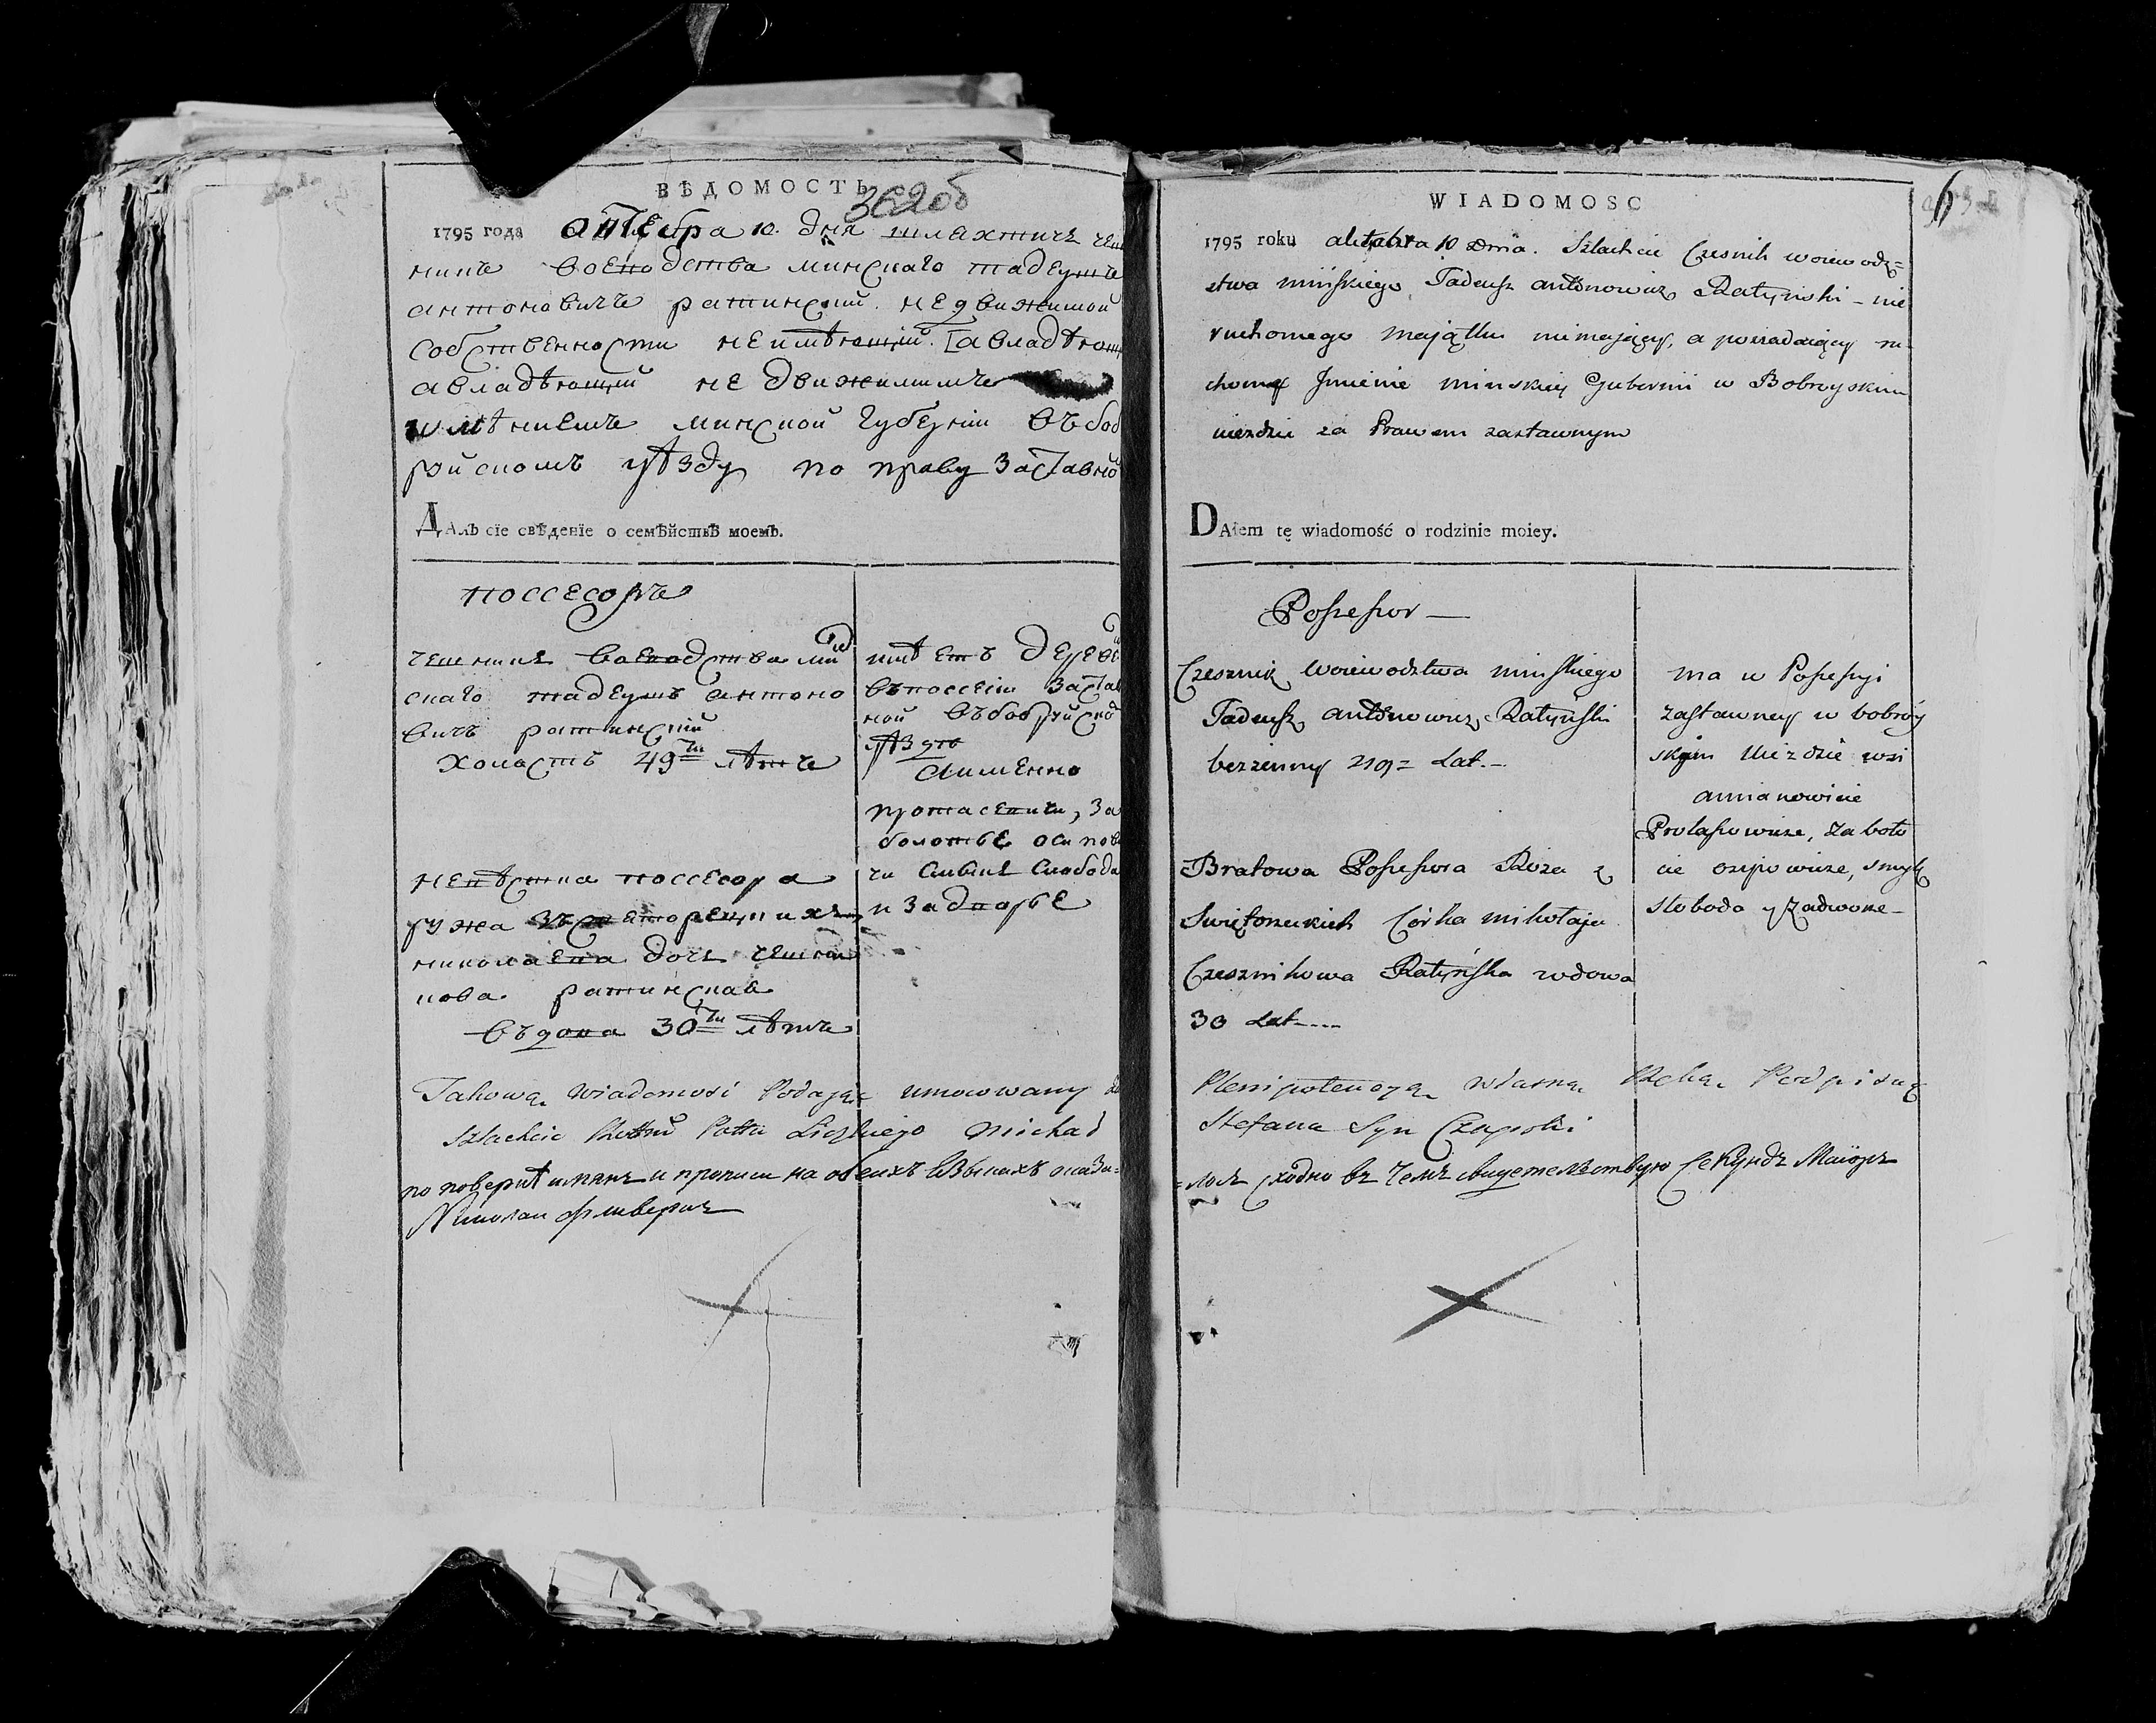 ВѢДОМОСТЬ
362об
1795 года октебра 10. дня шляхтичъ чеш
никъ воеводства минскаго тадеушъ
антоновичъ ратинский недвижимой
собственности неимѣющий. [авладѣющ
авладѣющий недвижимымъ
имѣниемъ минской губернии въ боб
руйскомъ уѣзду по праву заставно
ДАлъ сіе свѣденіе о семѣйствѣ моемъ.
поссесоръ
чешникъ воеводства мин
скаго тадеушъ антоно
вичъ ратинский
холостъ 49ти лѣтъ
невѣстка поссесора
ружа
николаева дочь чешни
кова ратинская
въдова 30ти лѣтъ
имѣетъ деревн
въпоссесіи застав
ной въбобруйско
уѣздѣ
аименно
протасевичи, за
болотье осипови
чи слобода
и задворье
Takową wiadomość Podając umocowany
Szlachcic Michał
по поверке имянъ и прописи на обеихъ языкахъ оказа=
Николаи
WIADOMOSC
6
1795 roku aktabra 10 Dnia. Szlachcic Czesnik woiewodz=
stwa mińskiego Tadeusz antonowicz Ratyński - nie
ruchomego maiątku niemaiący, a posiadaiący ru
chome Jmienie minskiey Gubernii w Bobruyskim
uiezdzie za Prawem zastawnym
DAiem tę wiadomość o rodzinie moiey.
Possessor —
Czesznik Woiewodztwa minskiego
Tadeusz antonowicz Ratyński
bezżenny 49= Lat. -
Bratowa Possessora Róza z
Swiętorzeckich Córka mikołaja
Czesznikowa Ratyńska wdowa
30 Lat ---
ma w Possessyi
zastawney w bobruy
skim Uiezdzie wsi
amianowicie
Protasowicze, Zaboło
cie osipowicze,
słoboda y Zadworze -
Plenipotencyą własną Ręką Podpisuę
Stefana Syn Czapski
=лось сходно въ чемъ свидетельствую Секундъ Маіоръ